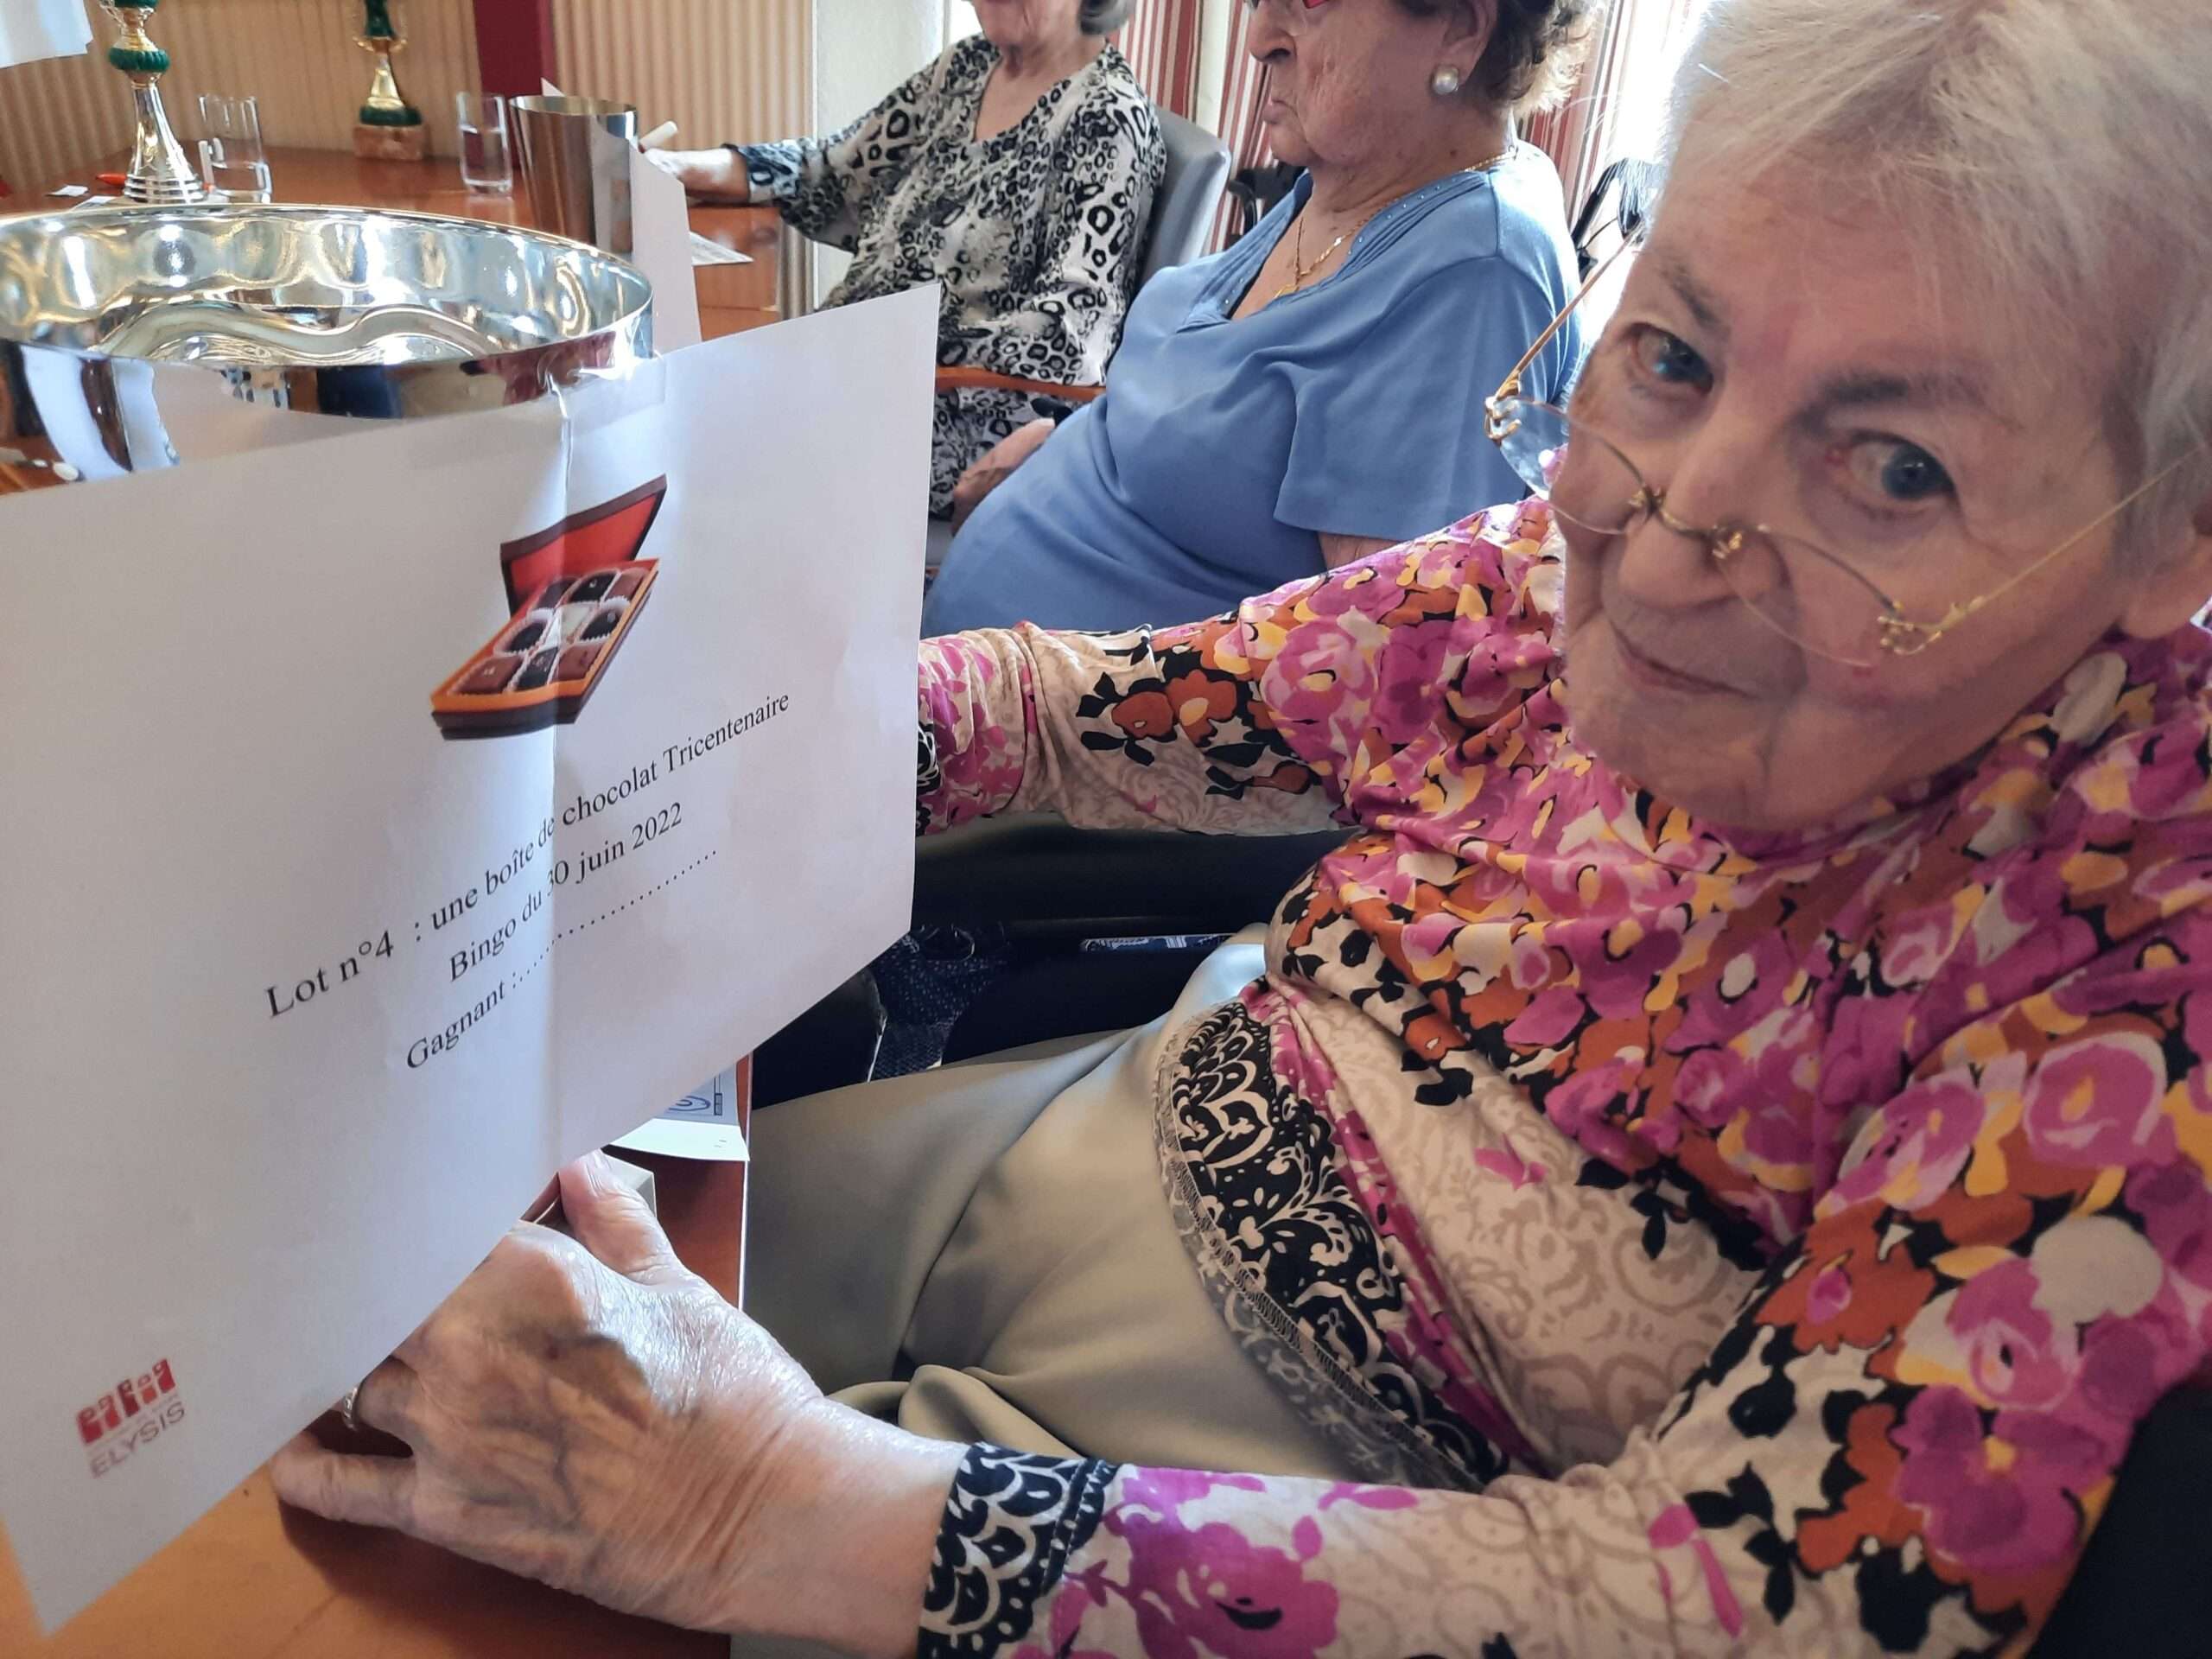 Lot n°4 : une boîte de chocolat Tricentenaire
Bingo du 30 juin 2022
Gagnant :..............................
ELYSIS